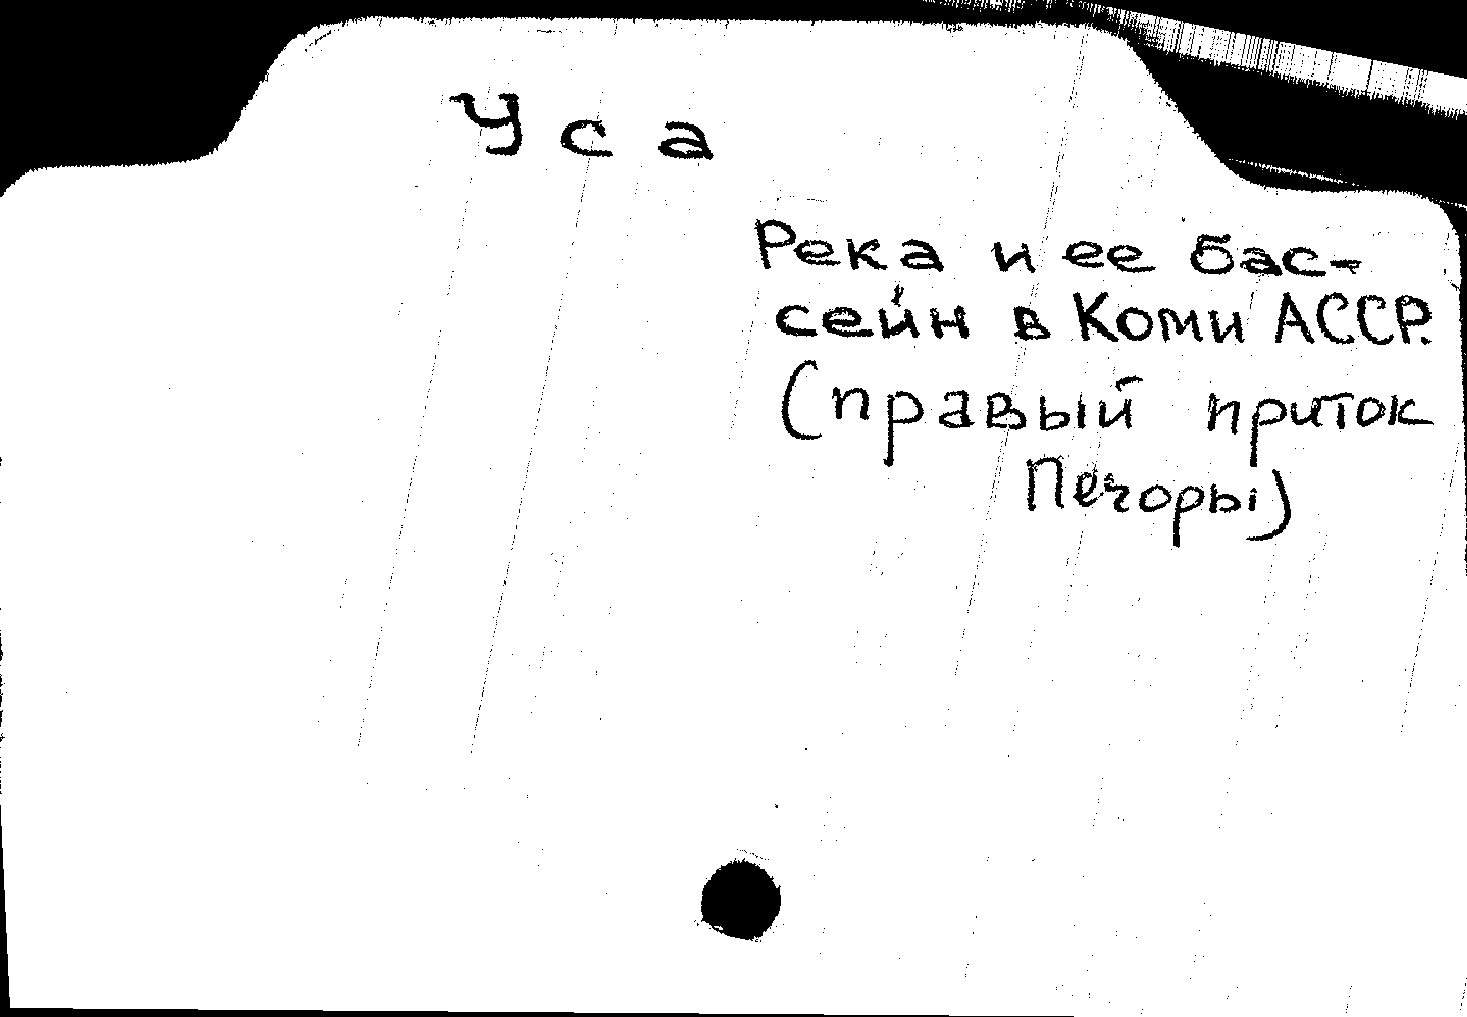 Уса
Река и ее бас-
сейн в Коми АССР.
(правый приток
Печоры)